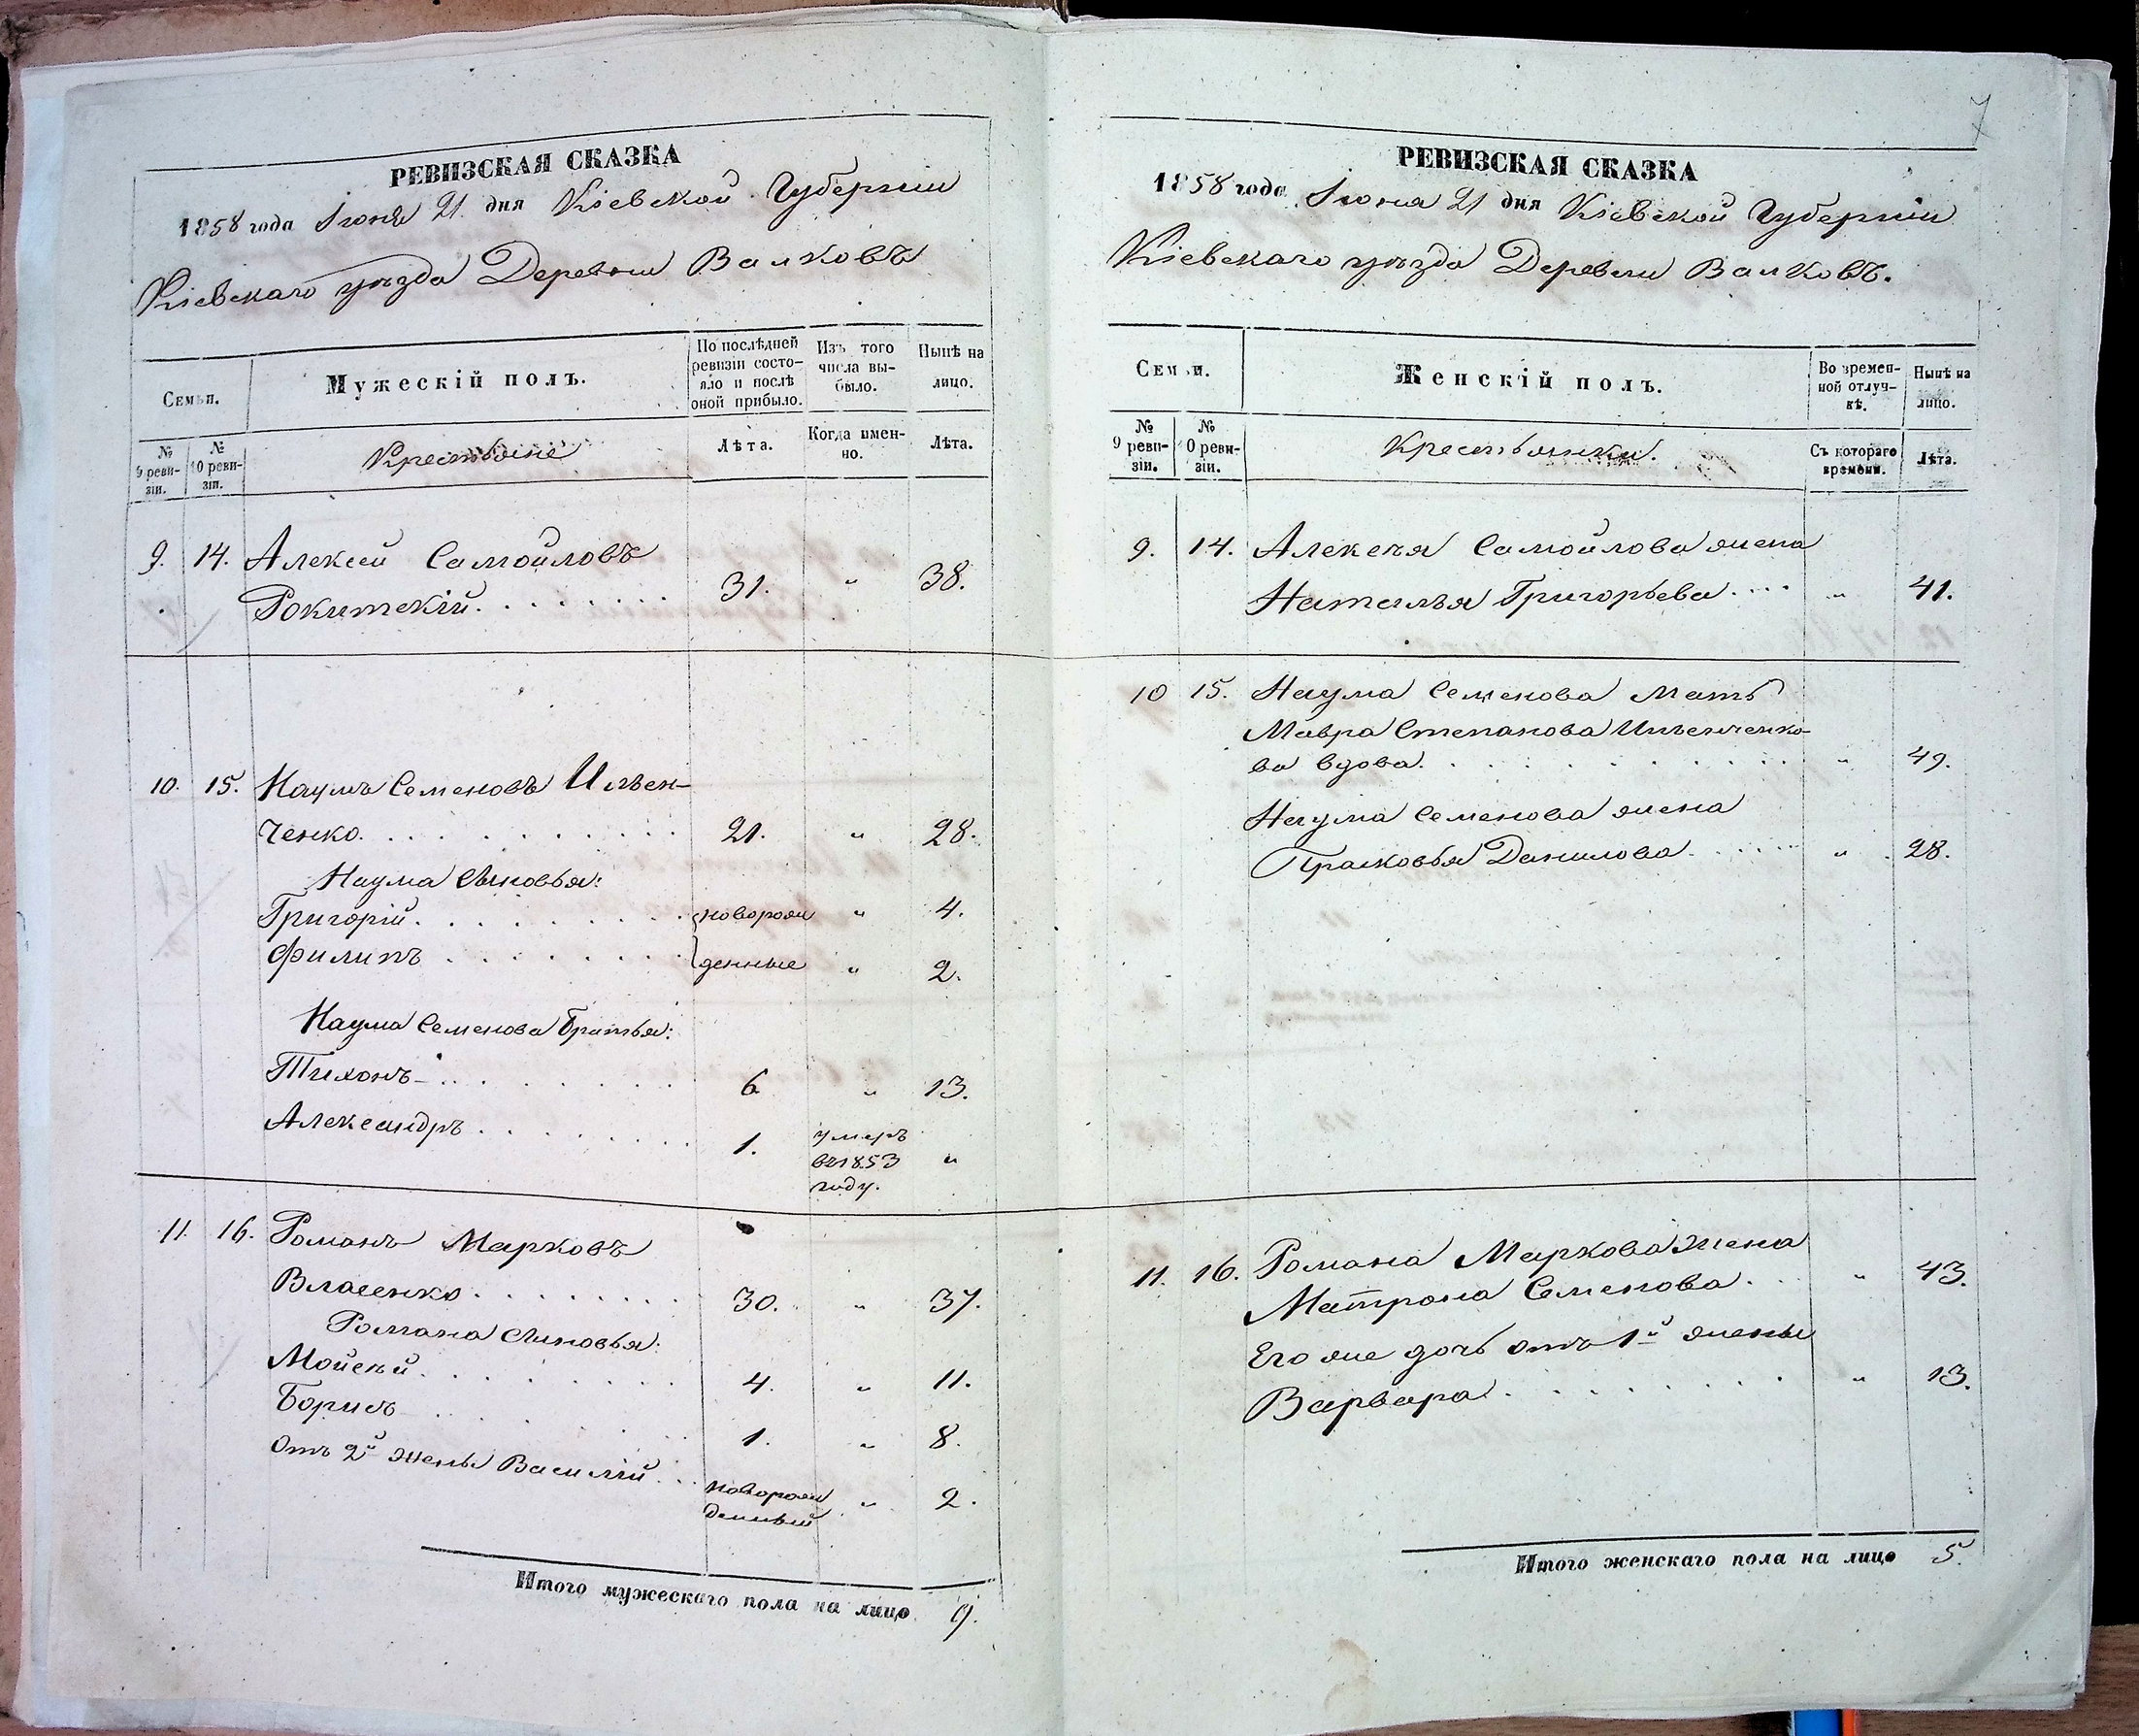 РЕВИЗСКАЯ СКАЗКА
1858 года Іюня 21 дня Кіевской Губерніи
Кіевскаго уѣзда Деревни Валковъ
Семьи.
Мужескій полъ.
По послѣдней ревизіи состояло и послѣ оной прибыло.
Изъ того числа выбыло.
Нынѣ на лицо.
№ 9 ревизіи.
№ 10 ревизіи.
Крестьяне
Лѣта.
Когда именно.
Лѣта.
9. 14. Алексей Самойловъ
Рокитскій. 31. " 38.
10. 15. Наумъ Семеновъ Ильен-
ченко. 21. " 28.
Наума Сыновья:
Григорій. новорож " 4.
Филипъ денные " 2.
Наума Семенова Братья:
Тихонъ 6 " 13.
Александръ 1. умеръ
въ 1853 "
году.
11. 16. Романъ Марковъ
Власенко 30. " 37.
Романа Сыновья:
Мойсей 4. " 11.
Борисъ 1. " 8.
Отъ 2й жены Василій новорож " 2.
денный
Итого мужескаго пола на лицо 9.
7
РЕВИЗСКАЯ СКАЗКА
1858 года Іюня 21 дня Кіевской Губерніи
Кіевскаго уѣзда Деревни Валковъ.
Семьи.
Женскій полъ.
Во временной отлучкѣ.
Нынѣ на лицо.
№ 9 ревизіи.
№ 10 ревизіи.
Крестьянки.
Съ котораго времени.
Лѣта.
9. 14. Алексея Самойлова жена
Наталья Григорьева " 41.
10 15. Наума Семенова Мать
Мавра Степанова Ильенченко-
ва вдова. " 49.
Наума Семенова жена
Прасковья Данилова. " 28.
11. 16. Романа Маркова жена
Матрона Семенова. " 43.
Его же дочь отъ 1й жены
Варвара " 13.
Итого женскаго пола на лицо 5.